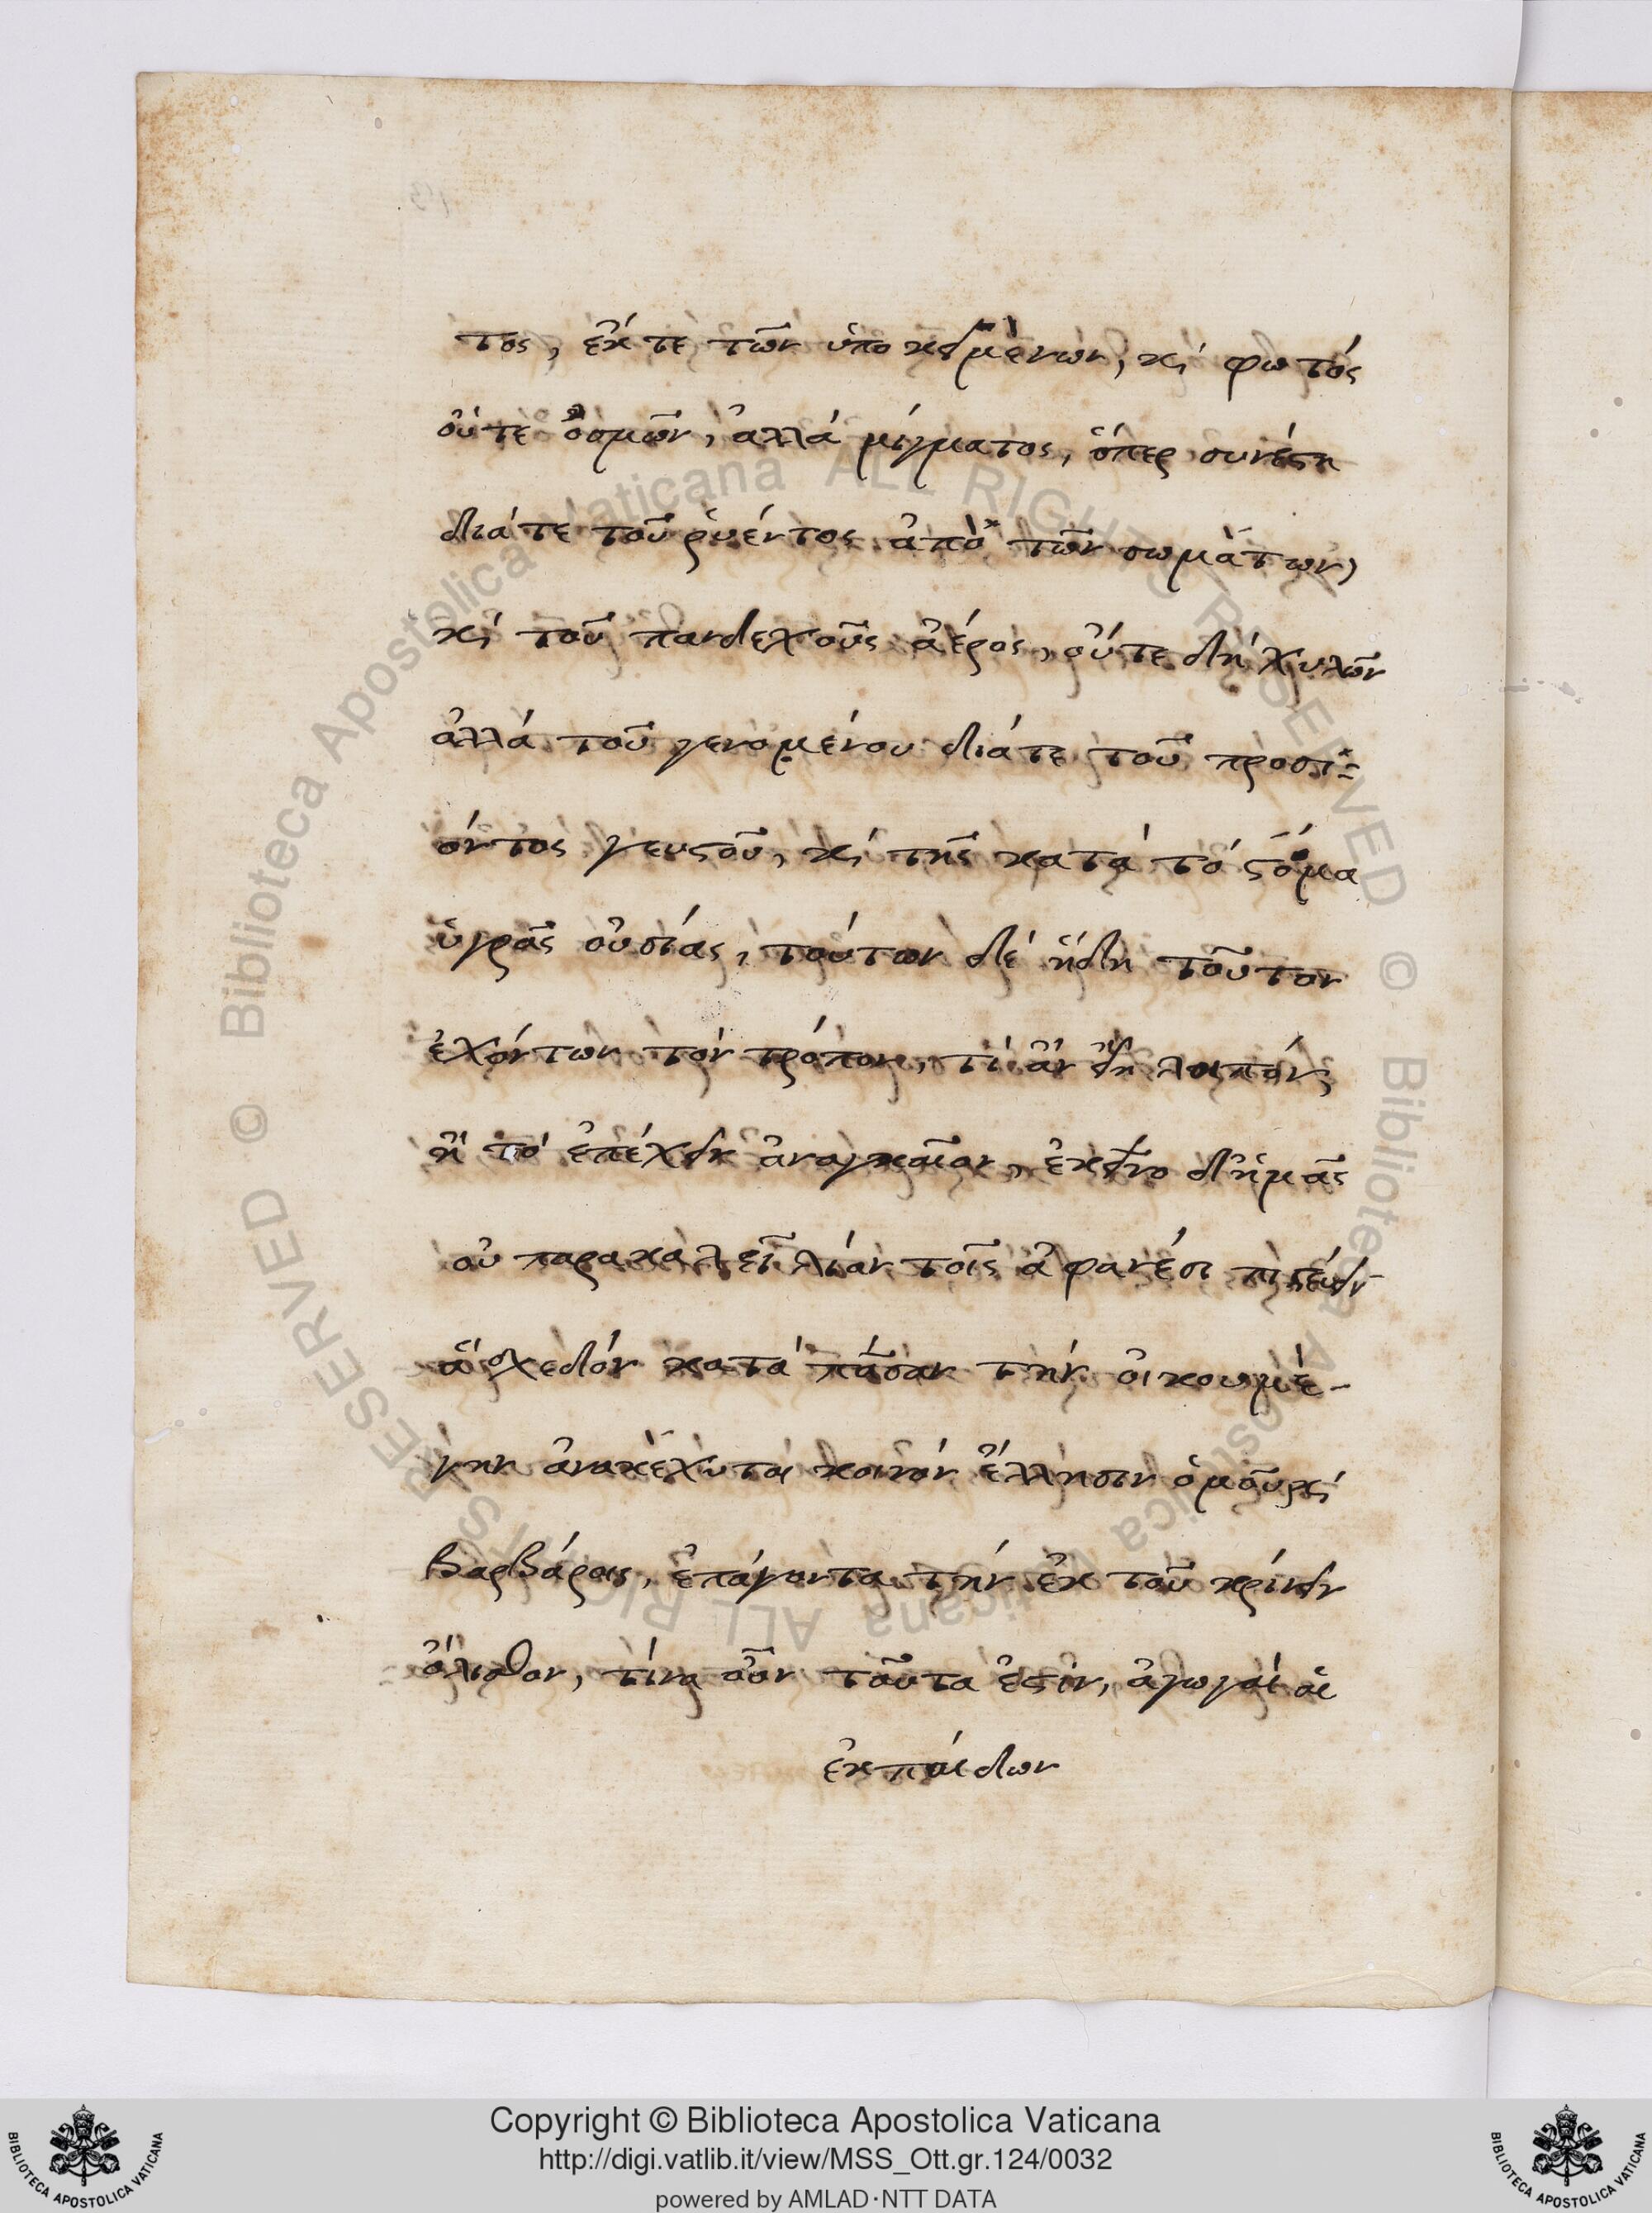 τος, ἔκτε τῶν ὑποκειμένων, καὶ φωτός
οὔτε ὀσμῶν, ἀλλά μίγματος, ὅπερ συνέστη
διάτε τοῦ ῥυέντος ἀπὸ τῶν σωμάτων,
καὶ τοῦ πανδεχοῦς ἀέρος, οὔτε δή χυλῶν
ἀλλά τοῦ γενομένου διάτε τοῦ προσι-
όντος γευστοῦ, καὶ τῆς κατά τό στόμα
ὑγρᾶς οὐσίας, τούτων δέ ἤδη τοῦτον
ἐχόντων τόν τρόπον, τί ἄν εἴη λοιπόν,
ἤ τό ἐπέχειν ἀναγκαῖον, ἐκεῖνο δ' ἡμᾶς
οὐ παρακαλεῖ λίαν τοῖς ἀφανέσι πιστεύειν
ἅ σχεδόν κατά πᾶσαν τήν οἰκουμέ-
νην ἀνακέχυται κοινόν ἕλλησιν ὁμοῦ καὶ
βαρβάροις, ἐπάγοντα τήν ἐκ τοῦ κρίνειν
ὄλισθον, τίνα οὖν ταῦτα ἐστίν, ἀγωγαί αἱ
ἐκπαίδων
Copyright © Biblioteca Apostolica Vaticana
http://digi.vatlib.it/view/MSS_Ott.gr.124/0032
powered by AMLAD·NTT DATA
BIBLIOTECA APOSTOLICA VATICANA
BIBLIOTECA APOSTOLICA VATICANA
© Biblioteca Apostolica Vaticana ALL RIGHTS RESERVED
© Biblioteca Apostolica Vaticana ALL RIGHTS RESERVED